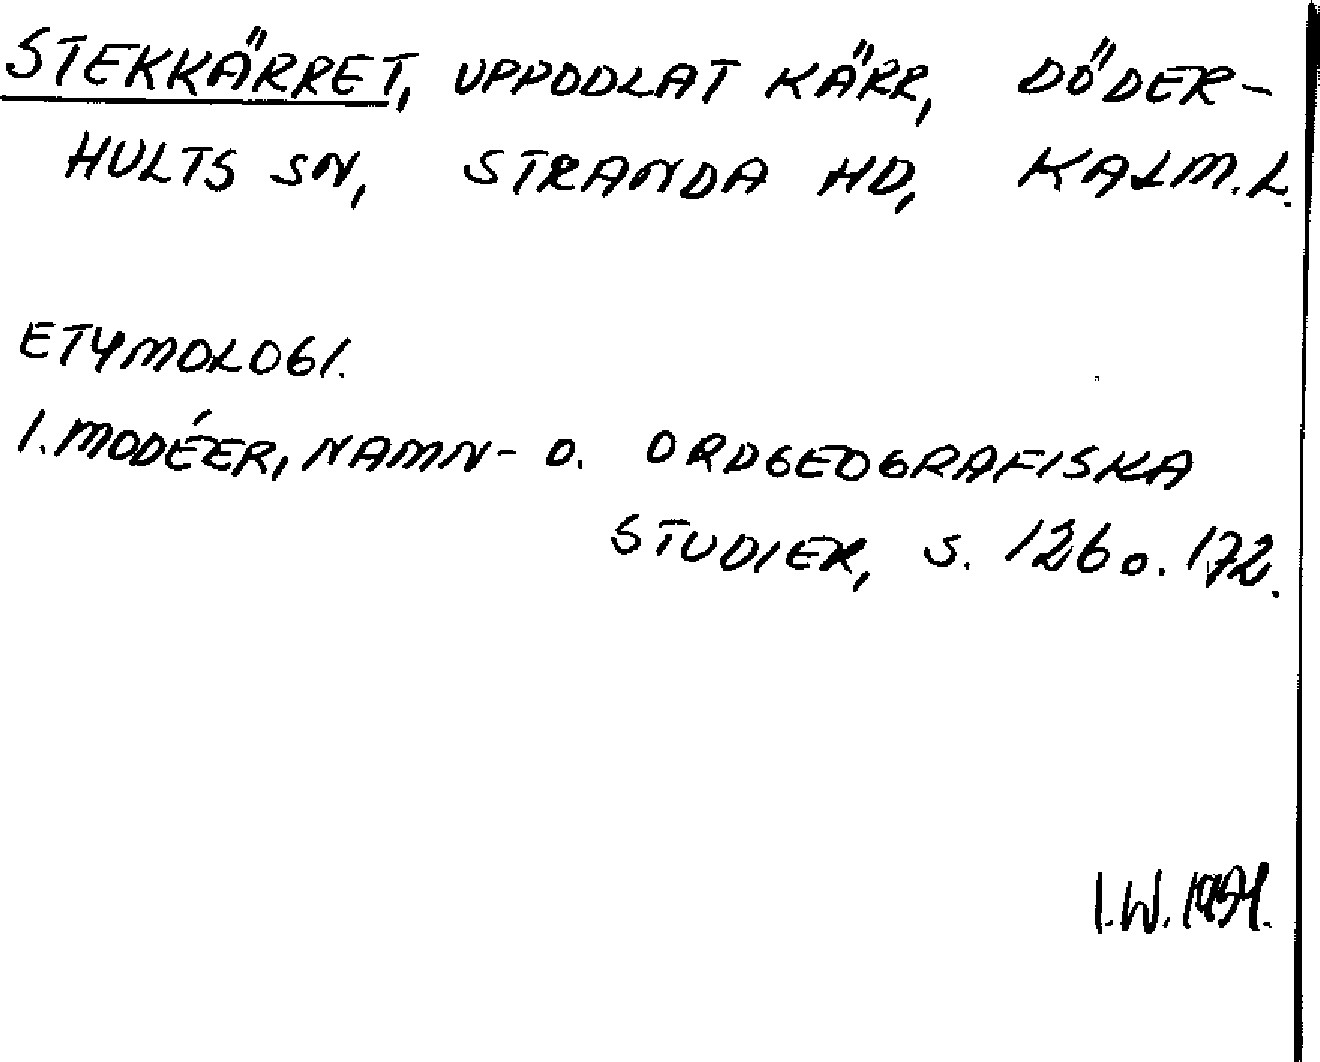 STEKKÄRRET, UPPODLAT KÄRR, DÖDER-
HULTS SN, STRANDA HD, KALM. L.
ETYMOLOGI.
I. MODÉER, NAMN- O. ORDGEOGRAFISKA
STUDIER, S. 126 o. 172.
I.W.